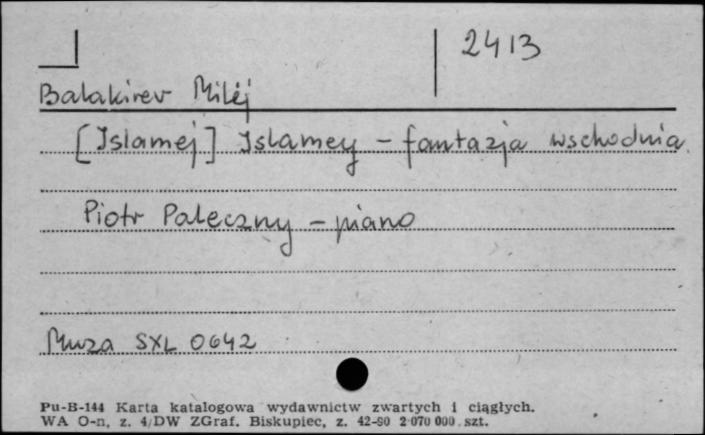 2413
Bałakirev Milij
[Islamej] Islamey – fantazja wschodnia
Piotr Paleczny – piano
Muza SXL 0642
Pu-B-144 Karta katalogowa wydawnictw zwartych i ciągłych.
WA O-n, z. 4/DW ZGraf. Biskupiec, z. 42-80 2 070 000 szt.